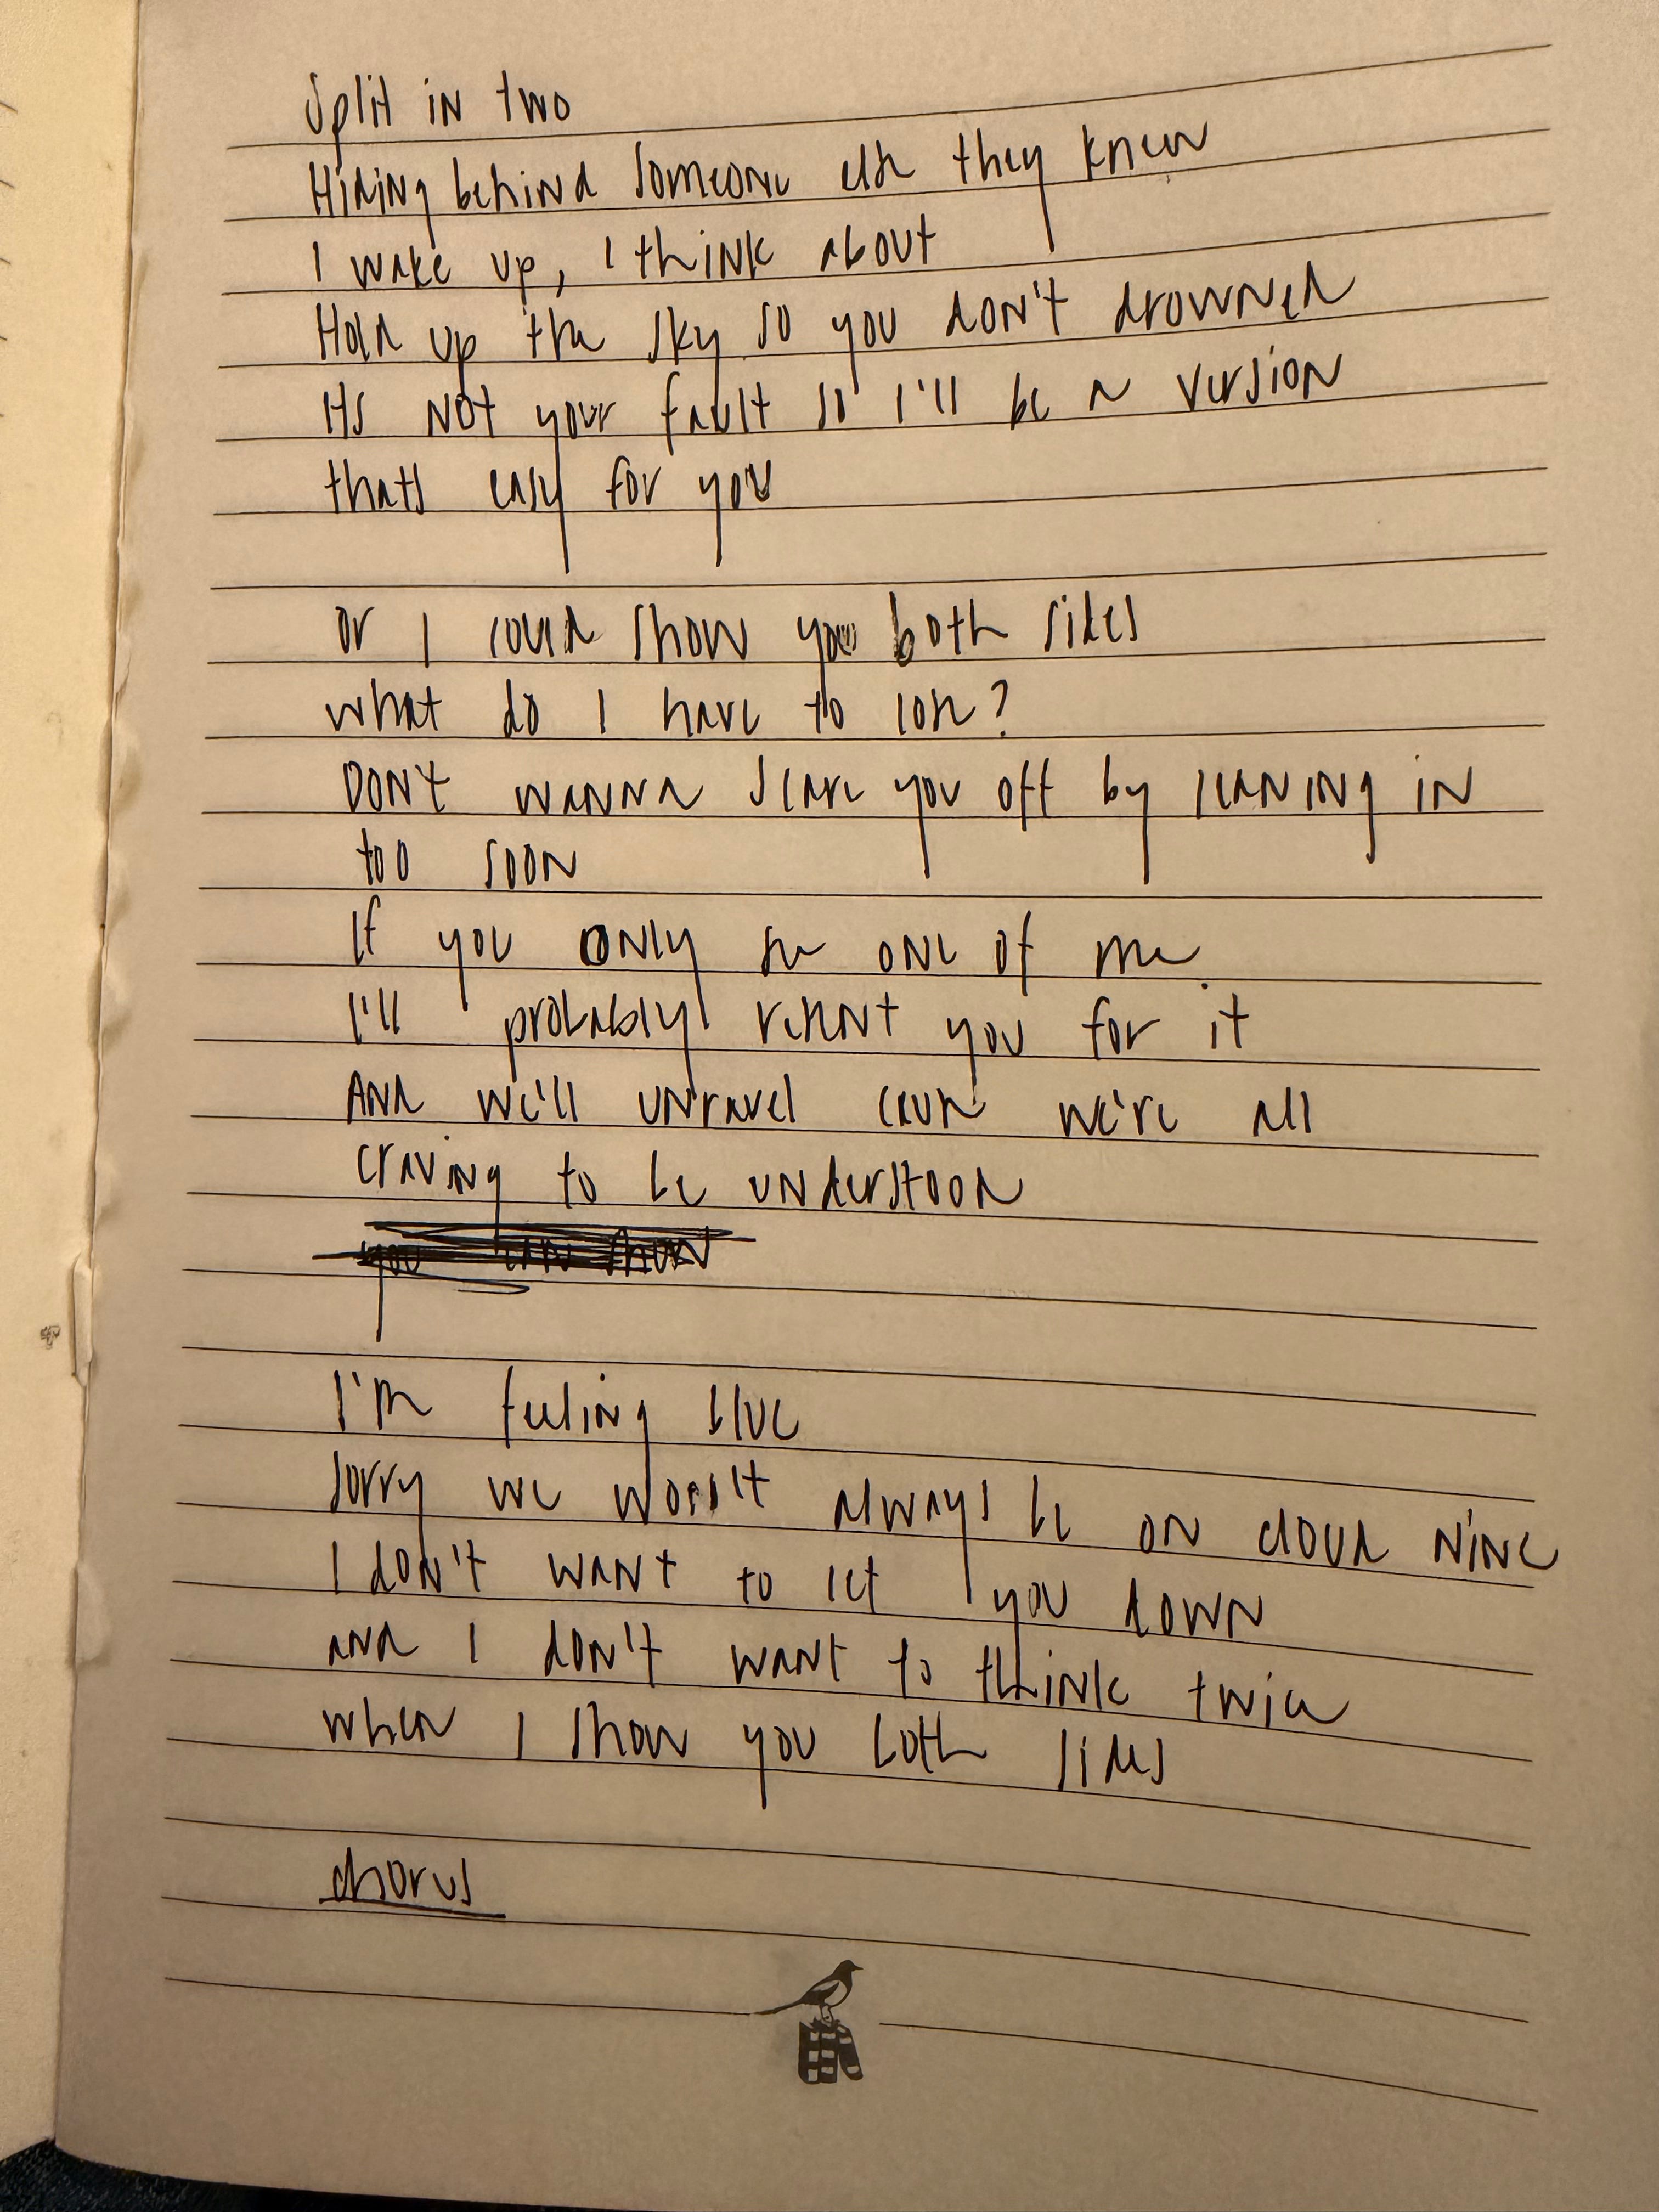 Split in two
Hiding behind someone else they knew
I wake up, I think about
Hold up the sky so you don't drowned
Its not your fault so I'll be a version
thats easy for you
or I could show you both sides
what do I have to lose?
Dont wanna scare you off by leaning in
too soon
If you only see one of me
I'll probably resent you for it
And we'll unravel cause we're all
craving to be understood
you can show
I'm feeling blue
sorry we won't always be on cloud nine
I don't want to let you down
and I don't want to think twice
when I show you both sides
chorus